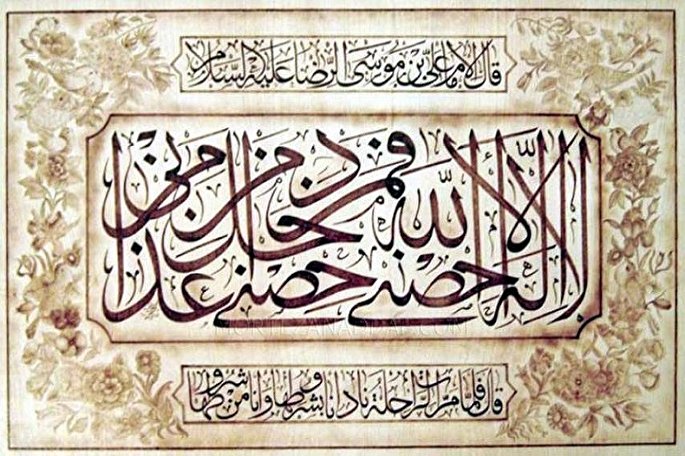 قال الامام علی بن موسی الرضا علیه السلام
لا اله الا الله حصنی فمن دخل حصنی امن من عذابی
قال فلما مرت الراحلة نادانا بشروطها و انا من شروطها